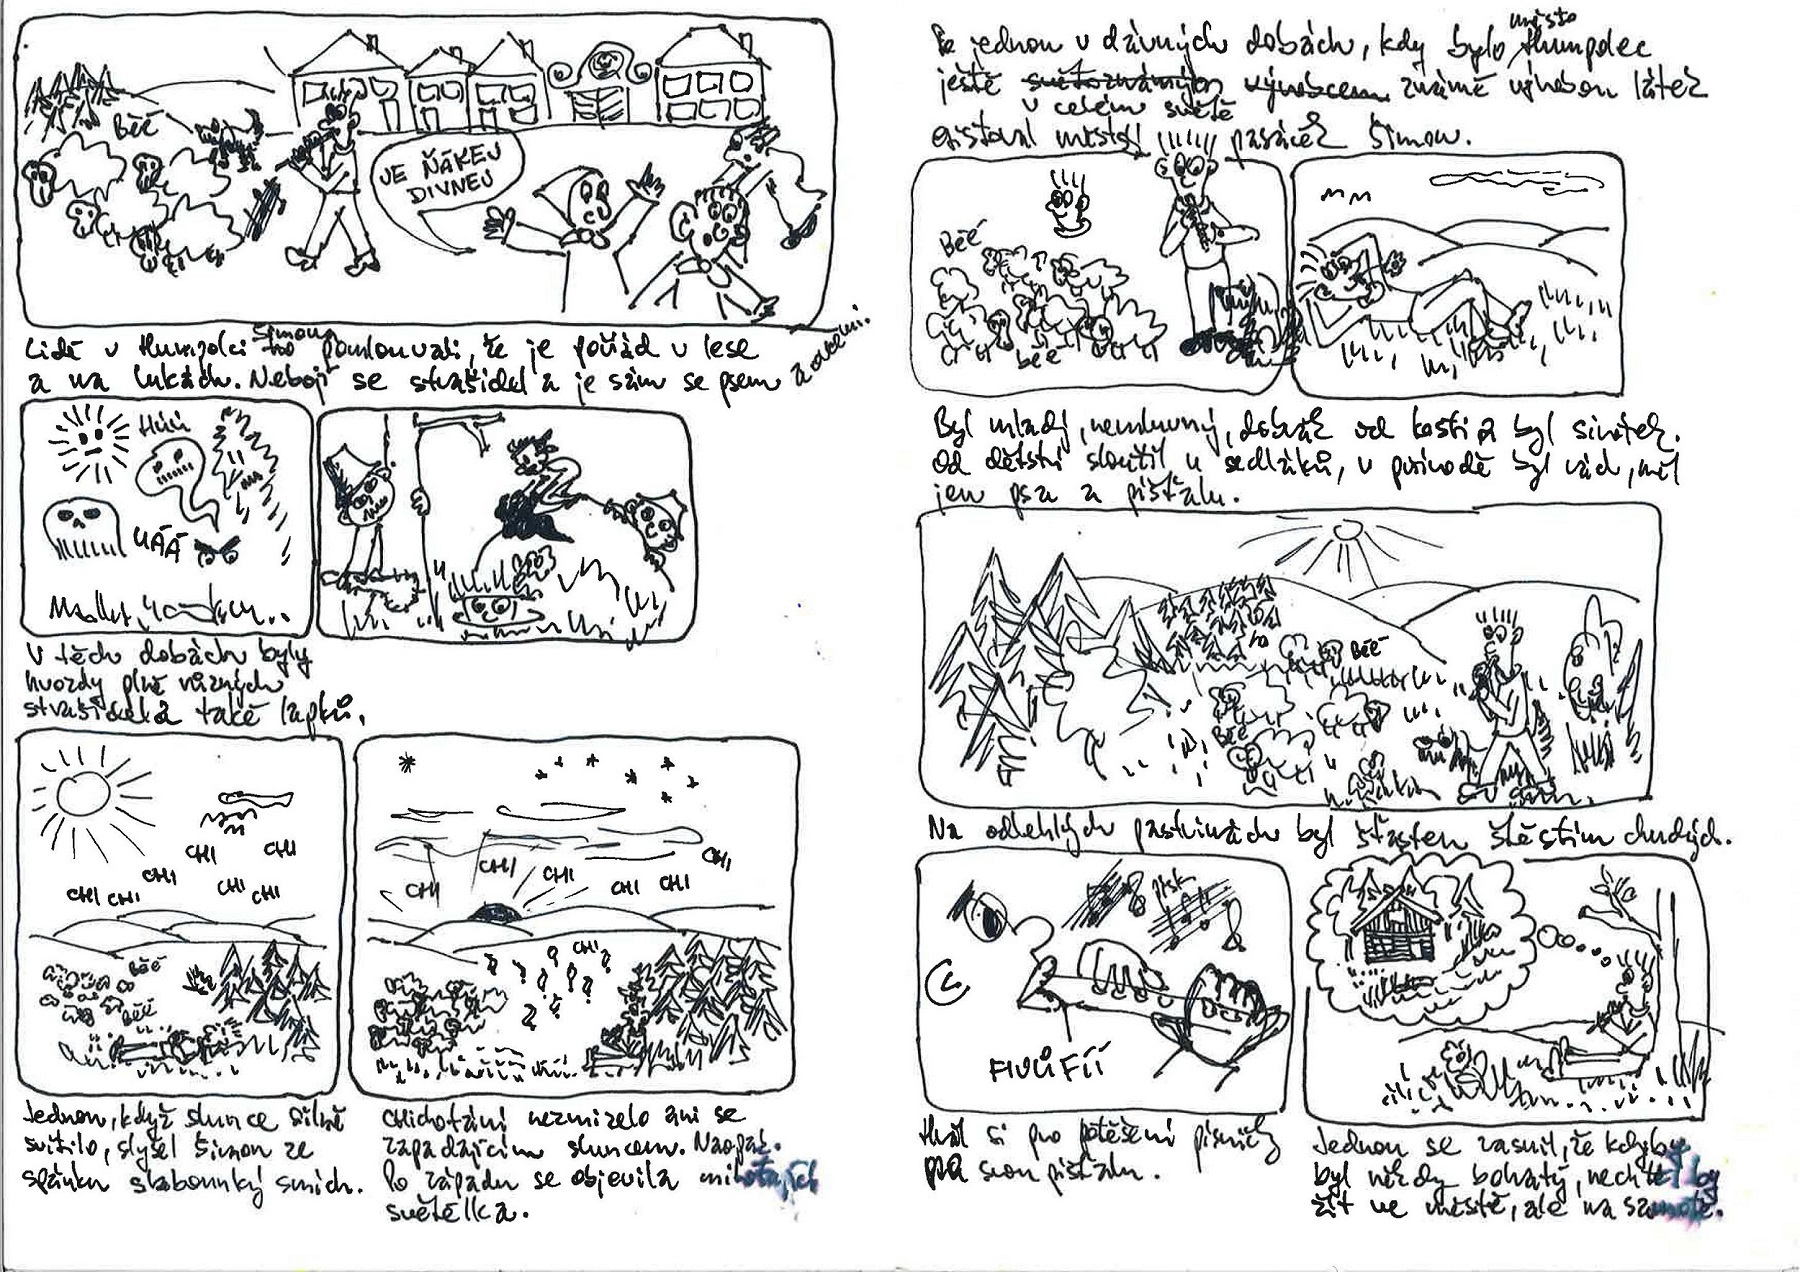 BÉÉ
JE ŇÁKEJ
DIVNEJ
Lidé v Humpolci Šimona pomlouvali, že je pořád v lese
a na lukách. Nebojí se strašidel a je sám se psem a ovcemi.
Húú
UÁÁ
V těch dobách byly
hvozdy plné různých
strašidel a také lapků.
CHI
CHI
CHI
CHI
CHI
CHI
CHI
BÉÉ
BÉÉ
Jednou, když slunce silně
svítilo, slyšel Šimon ze
spánku slabounký smích.
CHI
CHI
CHI
CHI
CHI
CHI
CHI
Chichotání nezmizelo ani se
zapadajícím sluncem. Naopak.
Po západu se objevila mihotajících
světélka.
jednou v dávných dobách, kdy bylo město Humpolec
ještě známé výrobou látek
v celém světě
existoval místní pasáček Šimon.
BÉÉ
BÉÉ
Byl mladý, nemluvný, dobrák od kosti a byl sirotek.
Od dětství sloužil u sedláků, v přírodě byl rád, měl
jen psa a píšťalu.
BÉÉ
BÉÉ
Na odlehlých pastvinách byl šťasten štěstím chudých.
FIÚÚ FÍÍ
Hrál si pro potěšení písničky
na svou píšťalu.
Jednou se zasnil, že kdyby
byl někdy bohatý, nechtěl by
žít ve městě, ale na samotě.